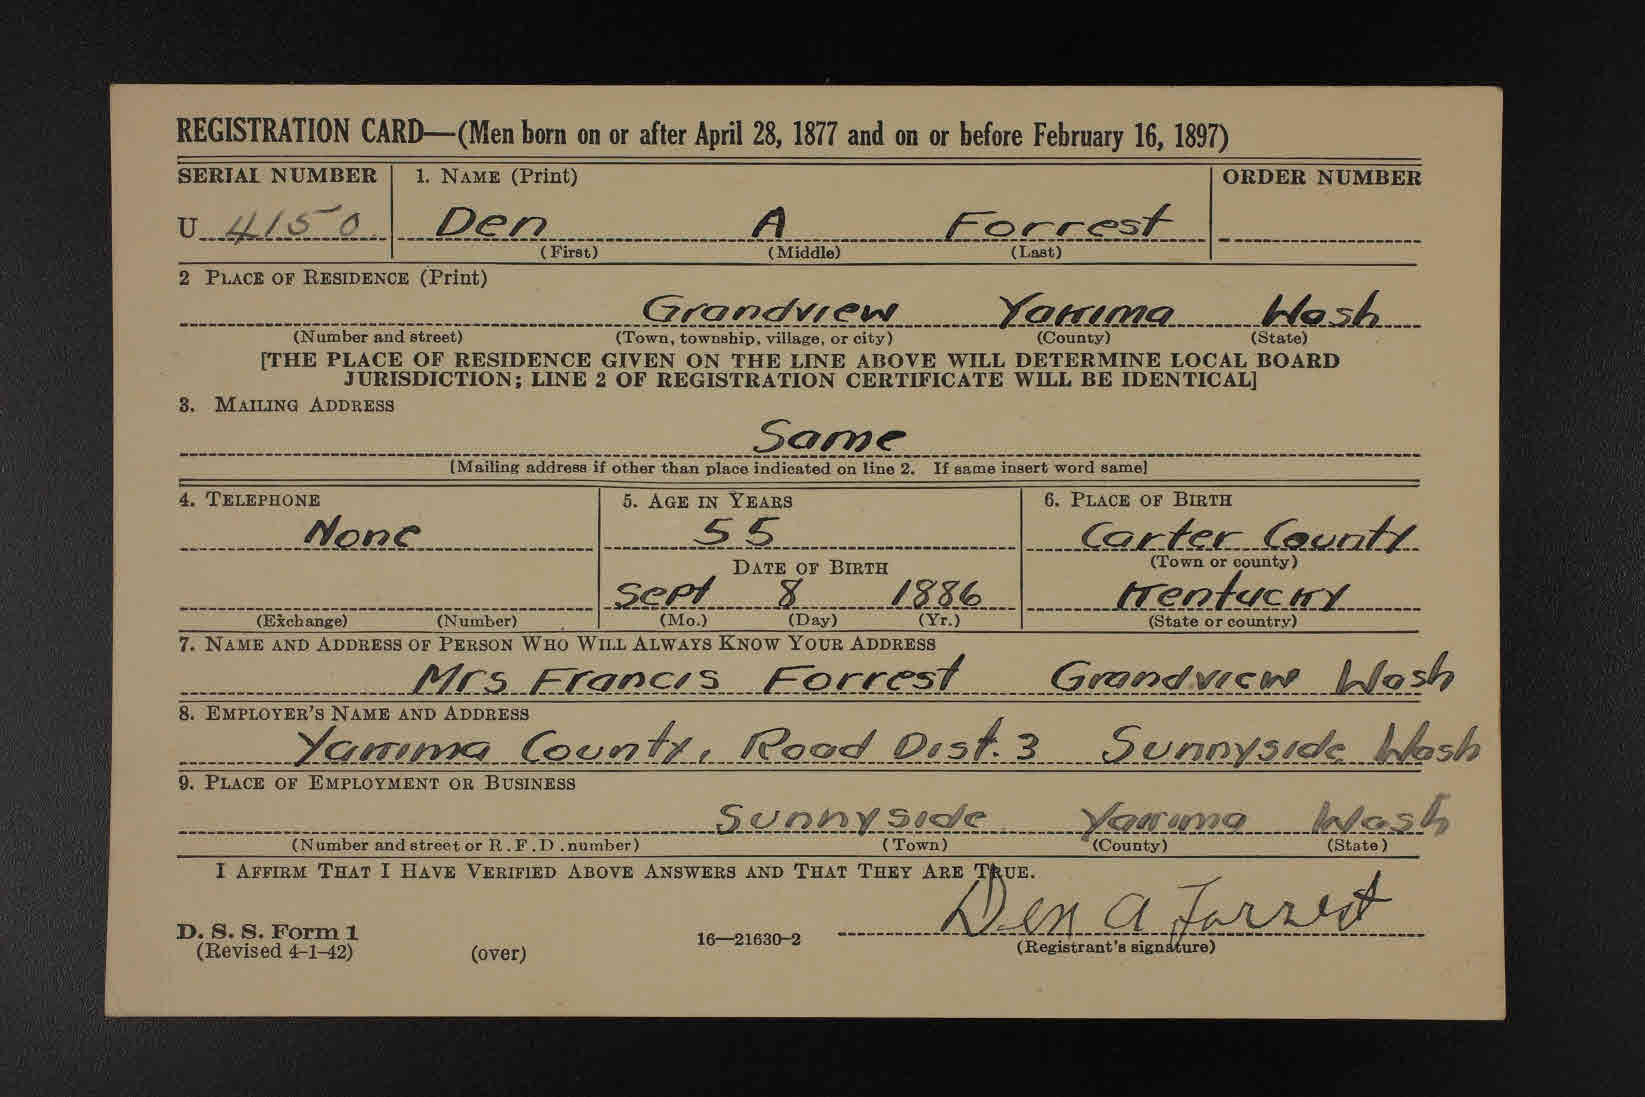 REGISTRATION CARD—(Men born on or after April 28, 1877 and on or before February 16, 1897)
SERIAL NUMBER 1. NAME (Print) ORDER NUMBER
U 4150 Den A Forrest
(First) (Middle) (Last)
2 PLACE OF RESIDENCE (Print)
Grandview Yakima Wash
(Number and street) (Town, township, village, or city) (County) (State)
[THE PLACE OF RESIDENCE GIVEN ON THE LINE ABOVE WILL DETERMINE LOCAL BOARD
JURISDICTION; LINE 2 OF REGISTRATION CERTIFICATE WILL BE IDENTICAL]
3. MAILING ADDRESS
Same
[Mailing address if other than place indicated on line 2. If same insert word same]
4. TELEPHONE 5. AGE IN YEARS 6. PLACE OF BIRTH
None 55 Carter County
DATE OF BIRTH (Town or county)
Sept 8 1886 Kentucky
(Exchange) (Number) (Mo.) (Day) (Yr.) (State or country)
7. NAME AND ADDRESS OF PERSON WHO WILL ALWAYS KNOW YOUR ADDRESS
Mrs Francis Forrest Grandview Wash
8. EMPLOYER'S NAME AND ADDRESS
Yakima County, Road Dist. 3 Sunnyside Wash
9. PLACE OF EMPLOYMENT OR BUSINESS
Sunnyside Yakima Wash
(Number and street or R.F.D. number) (Town) (County) (State)
I AFFIRM THAT I HAVE VERIFIED ABOVE ANSWERS AND THAT THEY ARE TRUE.
Den A Forrest
D. S. S. Form 1
(Revised 4-1-42) (over) 16—21630-2 (Registrant's signature)